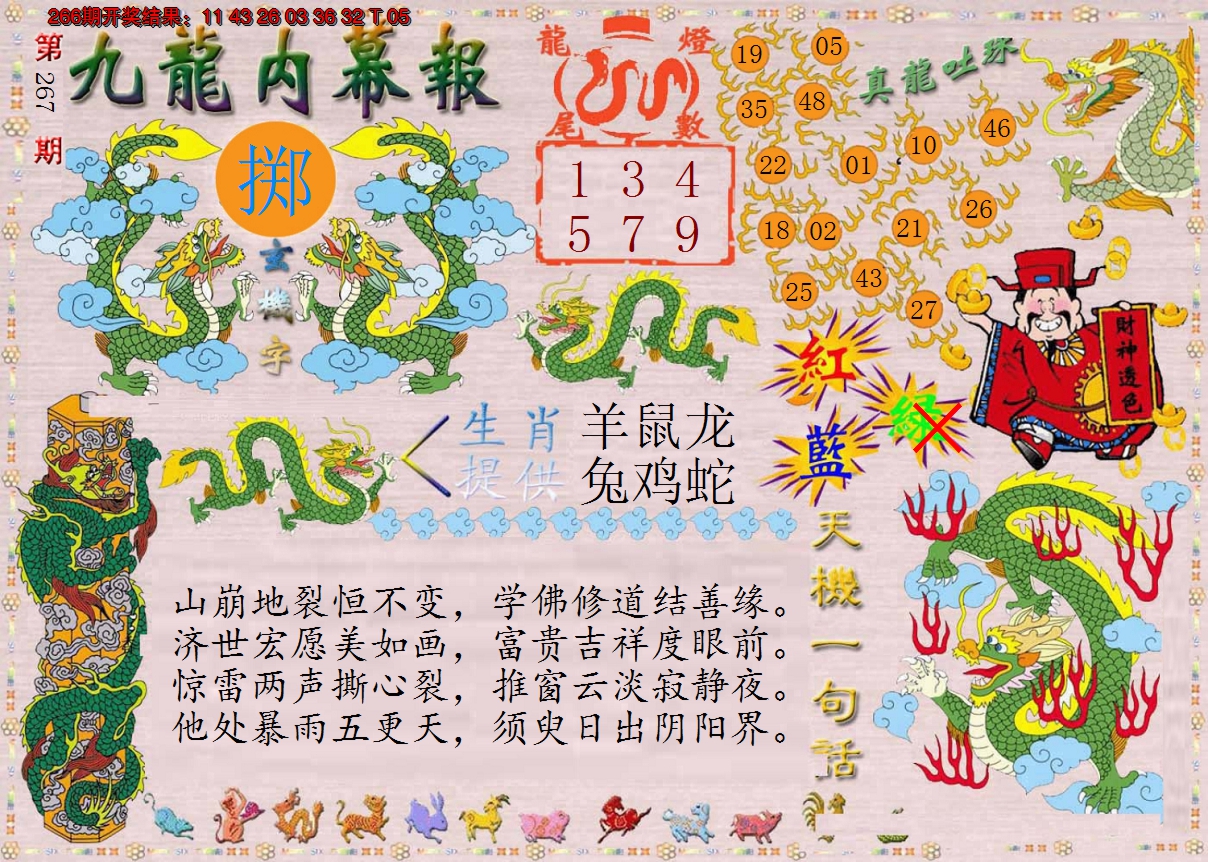 266期开奖结果：11 43 26 03 36 32 T 05
第267期
九龍内幕報
掷
玄機字
龍燈
尾數
1 3 4
5 7 9
真龍吐珠
19 05
35 48
22 01 10 46
18 02 21 26
25 43 27
紅
綠
藍
財神透色
生肖
提供
羊鼠龙
兔鸡蛇
天機一句话
山崩地裂恒不变，学佛修道结善缘。
济世宏愿美如画，富贵吉祥度眼前。
惊雷两声撕心裂，推窗云淡寂静夜。
他处暴雨五更天，须臾日出阴阳界。